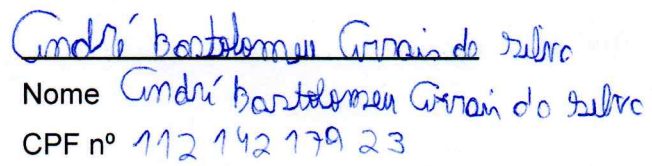 André Bartolomeu Arrais da Silva
Nome André Bartolomeu Arrais da Silva
CPF nº 112 142 179 23